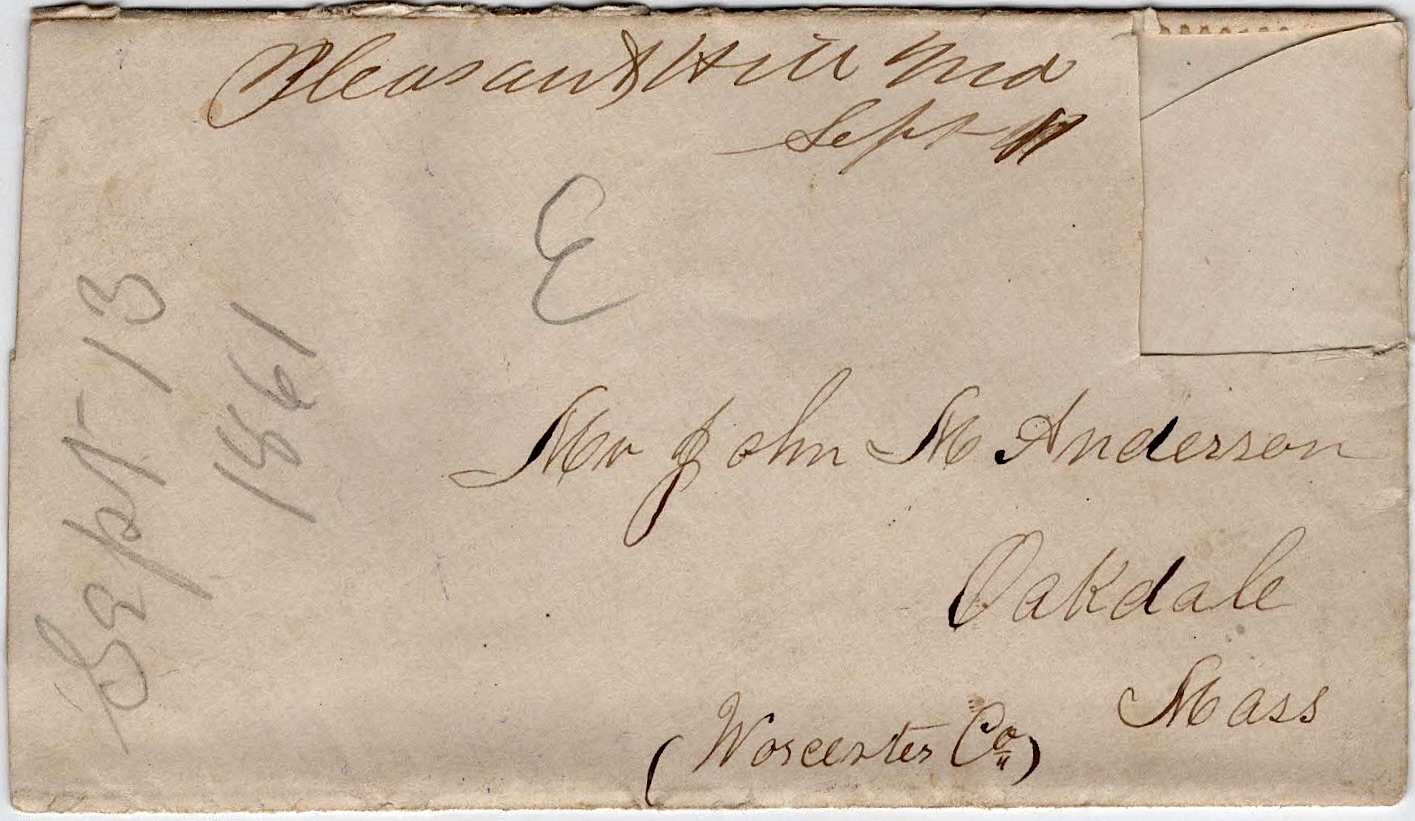 Pleasant Hill Md
Sept
E
Sept 13
1861
Mr John M Anderson
Oakdale
Mass
(Worcester Co)